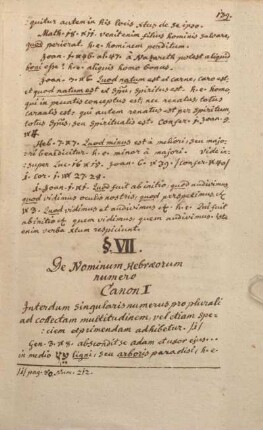 139.
quitur autem in his locis situs de se ipso.
Math. 18. v. 11. venit enim filius hominis salvare,
quod perierat. h. e. hominem perditum.
Joan. 1. v. 46. a Nazareth potest aliquid
boni esse? h. e. aliquis homo bonus.
Joan. 3. v. 6. Quod natum est ex carne, caro est,
et quod natum est ex spiritu, spiritus est. h. e. homo,
qui in peccatis conceptus est nec renatus totus
carnalis est. qui autem renatus est per spiritum,
totus seu spiritualis est. Confer. 1. Joan. 5.
Heb. 7. v. 7. Quod minus est a meliori, seu majori
benedicitur. h. e. minor a majori. Vide in-
super Luc. Joan. 6. v. 39. confer v. 40
1. Cor. 1. v. 27. 28.
1. Joan. 1. v. 1. Quod fuit ab initio, quod audivimus,
quod vidimus oculis nostris, quod perspeximus, et
v. 3. Quod vidimus et audivimus h. e. Qui fuit
ab initio et quem vidimus, quem audivimus.
enim verba respiciunt.
§. VII.
De Nominum Hebræorum
numero
Canon I
Interdum singularis numerus pro plurali
ad collectam multitudinem, vel etiam spe-
ciem exprimendam adhibetur. [1]
Gen. 3. v. 8. abscondit se adam et uxor ejus...
in medio עץ ligni, seu arboris paradisi, h. e.
[1] pag. Num. 212.